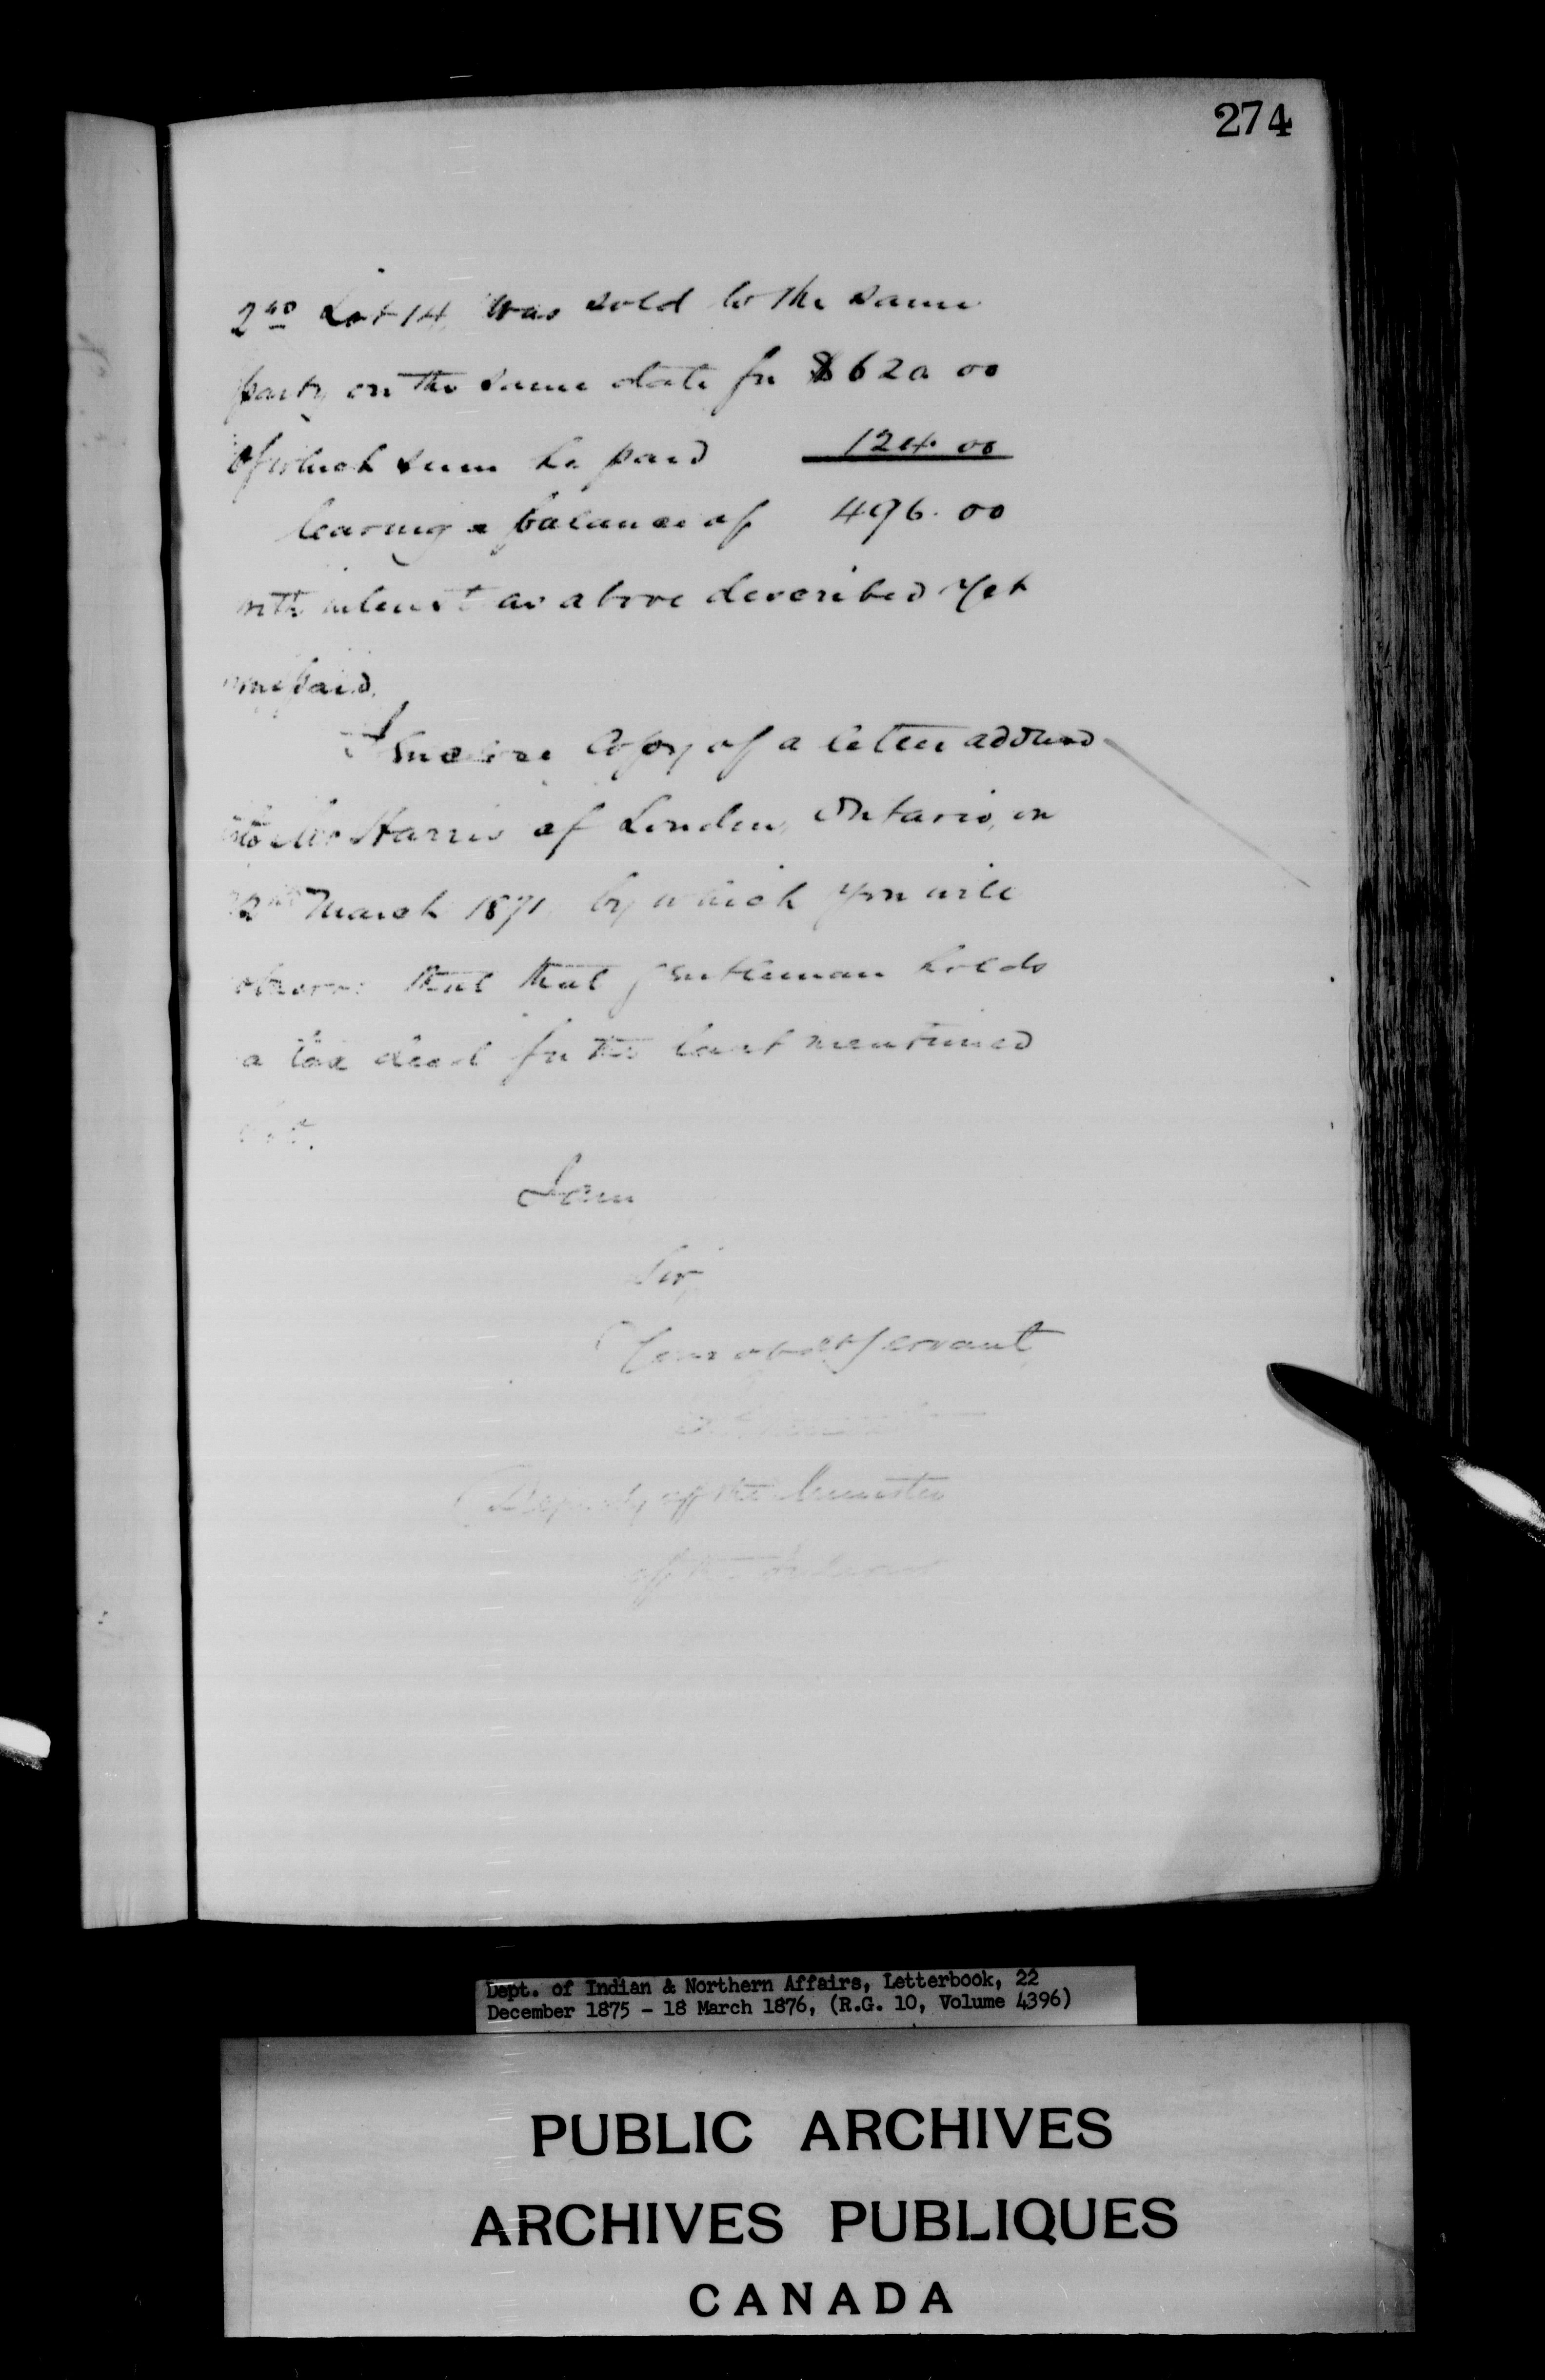 274
2nd Lot 14, was sold to the same
party on the same date for $620 00
Of which sum he paid 124.00
leaving a balance of 496.00
with interest as above described yet
unpaid.
I enclose copy of a letter addressed
to Mr Harris of London, Ontario, on
March 1871, by which you will
observe that that gentleman holds
a tax deed for the last mentioned
lot.
I am
Sir,
Your obedt servant
Deputy of the Minister
of the Interior
Dept. of Indian & Northern Affairs, Letterbook, 22
December 1875 - 18 March 1876, (R.G. 10, Volume 4396)
PUBLIC ARCHIVES
ARCHIVES PUBLIQUES
CANADA